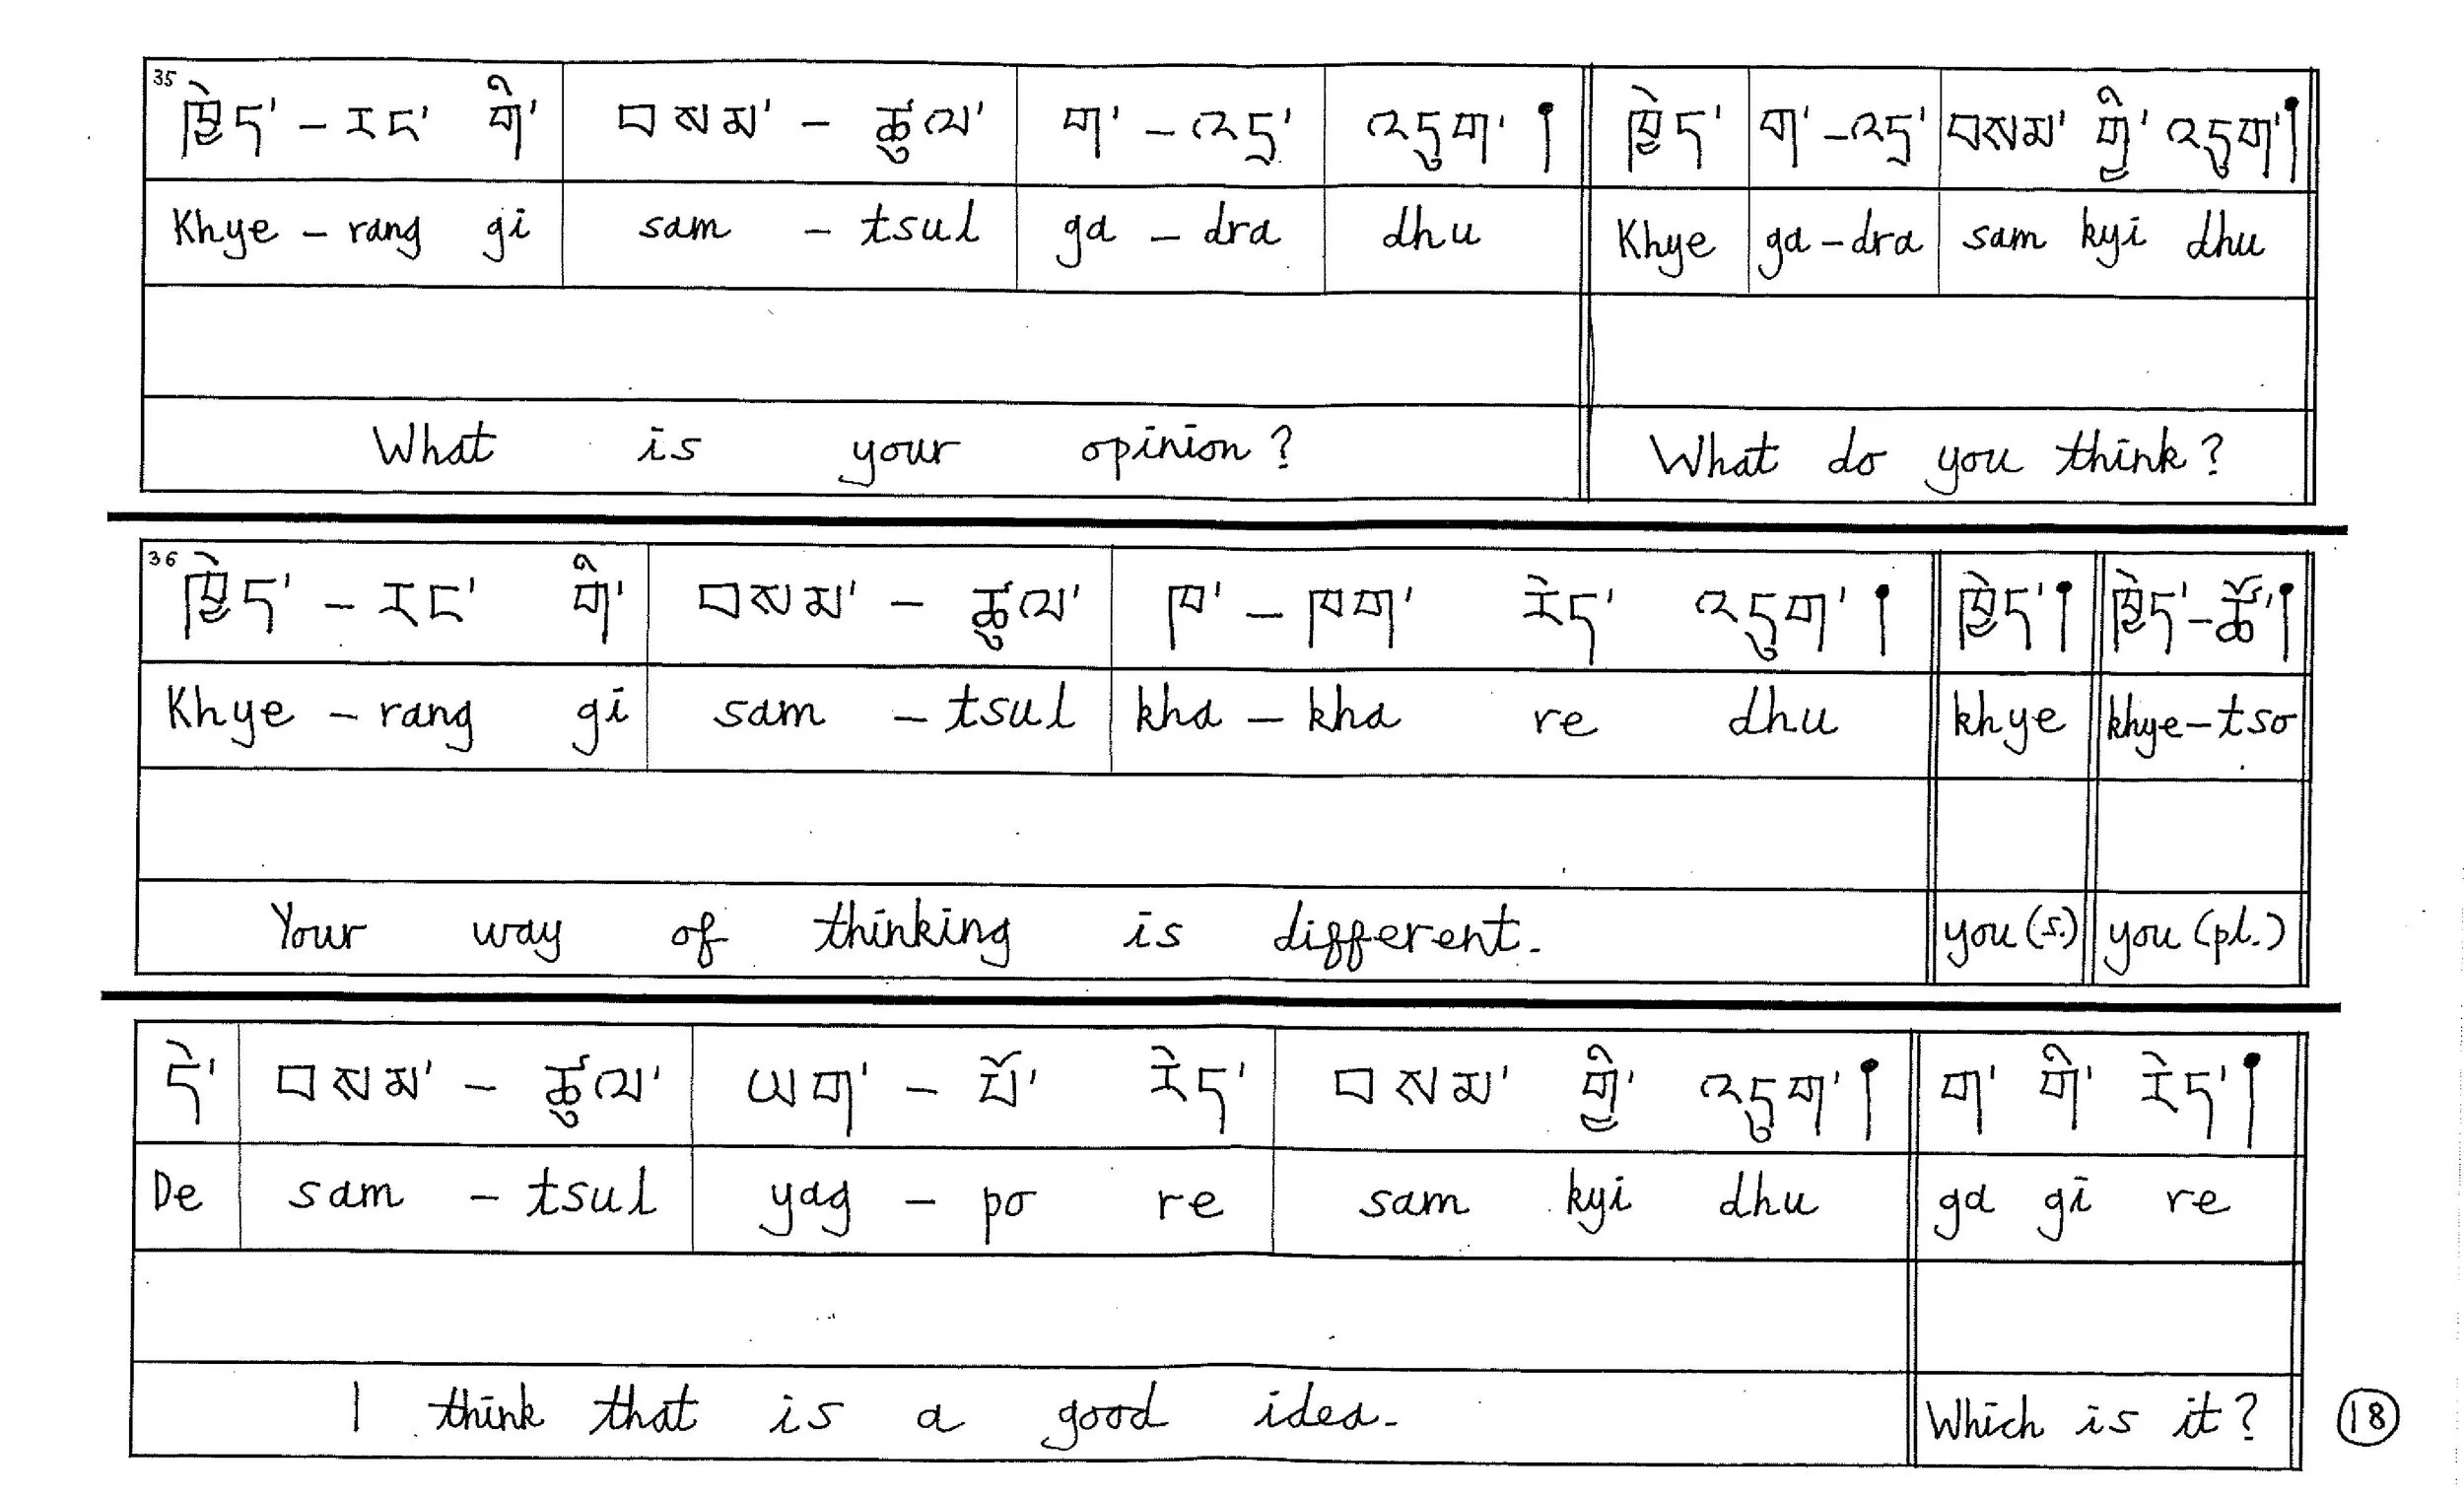 35 ཁྱེད་ – རང་ གི་ བསམ་ – ཚུལ་ ག་ – འདྲ་ འདུག་ ། ཁྱེད་ ག་ – འདྲ་ བསམ་ གྱི་ འདུག་ །
Khye – rang gi sam – tsul ga – dra dhu Khye ga – dra sam kyi dhu
What is your opinion? What do you think?
36 ཁྱེད་ – རང་ གི་ བསམ་ – ཚུལ་ ཁ་ – ཁག་ རེད་ འདུག་ ། ཁྱེད་ ། ཁྱེད་ – ཚོ་ །
Khye – rang gi sam – tsul kha – kha re dhu khye khye – tso
Your way of thinking is different. you (s.) you (pl.)
དེ་ བསམ་ – ཚུལ་ ཡག་ – པོ་ རེད་ བསམ་ གྱི་ འདུག་ ། ག་ གི་ རེད་ །
De sam – tsul yag – po re sam kyi dhu ga gi re
I think that is a good idea. Which is it?
18